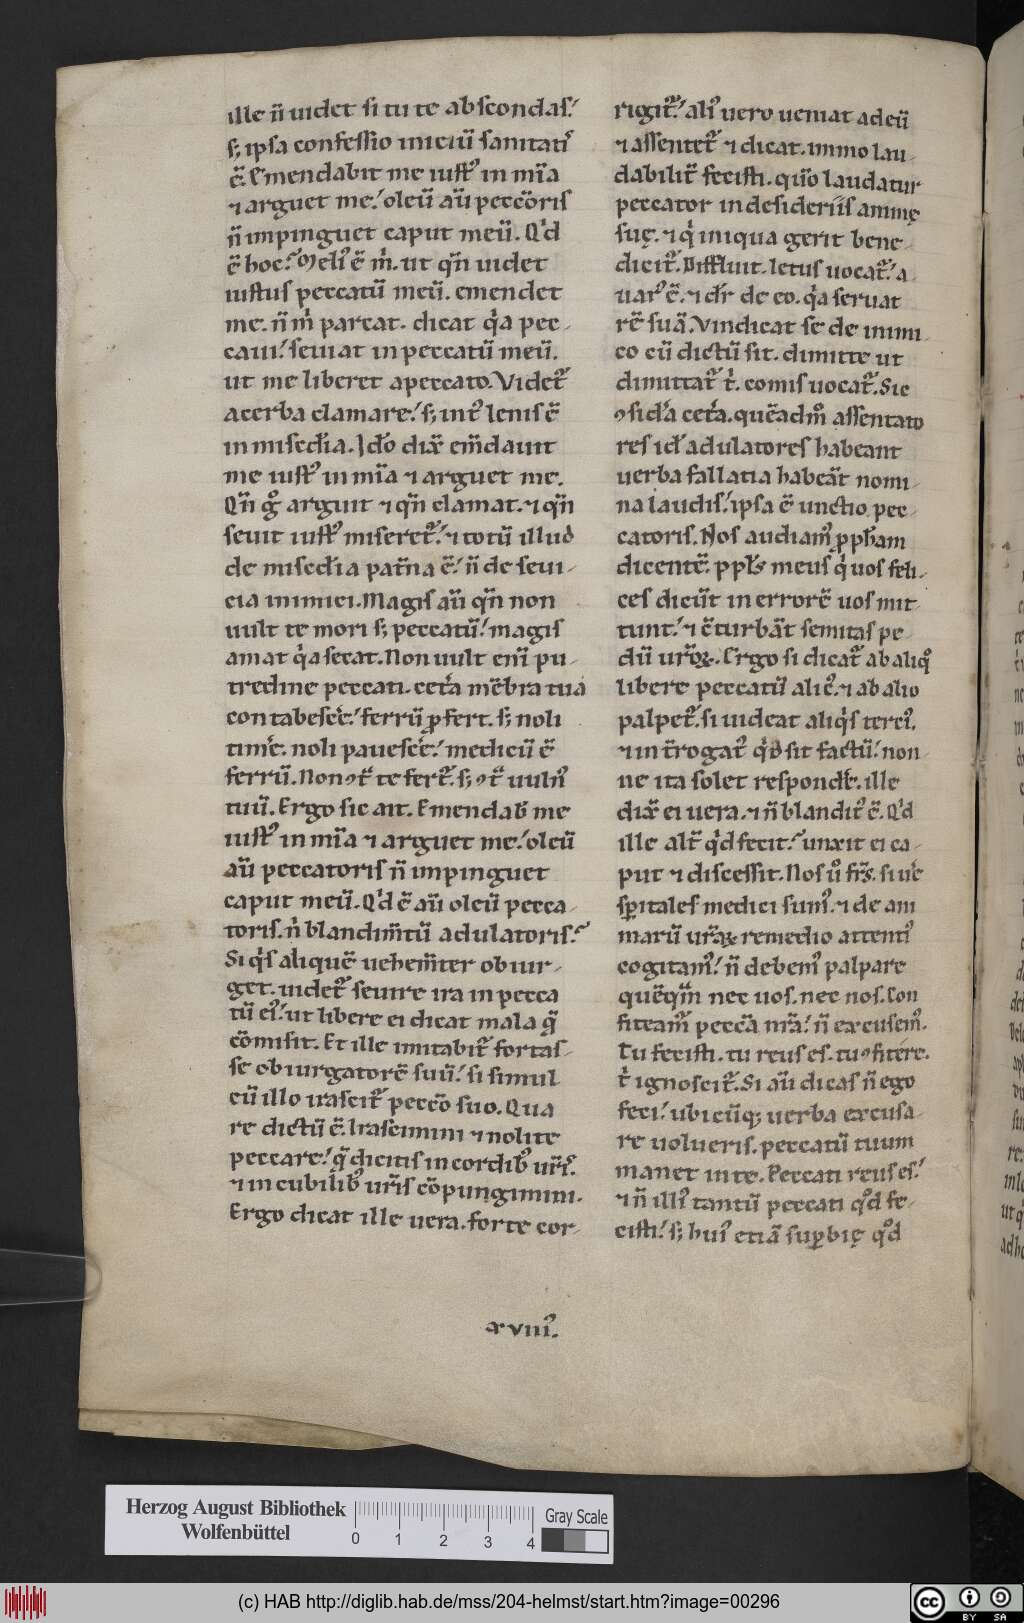 ille n̄ uidet si tu te abscondas.
s; ipsa confessio iniciū sanitatis
ē. Emendabit me iust᷒ in mīa
⁊ arguet me. oleū aū peccōris
n̄ impinguet caput meū. Qͥd
ē hoc? Meli᷒ ē m̄. ut qn̄ uidet
iustus peccatū meū. emendet
me. n̄ mͥ parcat. dicat qͥa pec-
caui. seuiat in peccatū meū.
ut me liberet a peccato. Videt᷑
acerba clamare. s; int᷒ lenis ē
in misedͥa. Ido dix̄ em̄dauit
me iust᷒ in mīa ⁊ arguet me.
Qn̄ gͦ arguit ⁊ qn̄ clamat. ⁊ qn̄
seuit iust᷒ miseret᷑. ⁊ totū illud
de misedͥa pat̄na ē. n̄ de seui-
cia inimici. Magis aū qn̄ non
uult te mori s; peccatū. magis
amat qͥa secat. Non uult eni᷒ pu-
tredine peccati. cet̄a mēbra tua
contabescē. ferrū ꝓfert. s; noli
timē. noli pauescē. medicū ē
ferrū. Non ꝯt̄ te fert᷑. s; ꝯt̄ uuln᷒
tuū. Ergo sic ait. Emendab̄ me
iust᷒ in mīa ⁊ arguet me. oleū
aū peccatoris n̄ impinguet
caput meū. Qͥd ē aū oleū pecca-
toris. nͥ blandim̄tū adulatoris?
Si qͥs aliquē uehem̄ter obiur-
get. uidet᷑ seuire ira in pecca
tū ei᷒. ut libere ei dicat mala q̄
cōmisit. Et ille imitabit᷑ fortas-
se obiurgatorē suū. si simul
cū illo irascit᷑ peccō suo. Qua
re dictū ē. Irascimini ⁊ nolite
peccare. q̄ dicitis in cordib᷒ ur̄is.
⁊ in cubilib᷒ ur̄is cōpungimini.
Ergo dicat ille uera. forte cor-
rigit᷑. ali᷒ uero ueniat ad eū
⁊ assentet᷑ ⁊ dicat. immo lau-
dabilit̄ fecisti. quō laudatur
peccator in desideriis animę
suę. ⁊ qͥ iniqua gerit bene-
dicit᷑. Diffluit. letus uocat᷑. a
uar᷒ ē. ⁊ dr̄ de eo. qͥa seruat
rē suā. Vindicat se de inimi
co cū dictū sit. dimitte ut
dimittat᷑ tͥ. comis uocat᷑. Sic
ꝯsidͥa cet̄a. quēadmͦ assentato
res id̄ adulatores habeant
uerba fallatia habeāt nomi-
na laudis. ipsa ē unctio pec-
catoris. Nos audiam᷒ ꝓph̄am
dicentē. ppl̄s meus qͥ uos feli-
ces dicūt in errorē uos mit
tunt. ⁊ ꝯturbāt semitas pe-
dū ur̄oꝝ. Ergo si dicat᷑ ab aliqͦ
libere peccatū alic᷒. ⁊ ab alio
palpet᷑. si uideat aliqͥs terci᷒.
⁊ int̄rogat᷒ qͥd sit factū. non-
ne ita solet respondē. ille
dix̄ ei uera. ⁊ n̄ blandit᷒ ē. Qͥd
ille alt̄ qͥd fecit? unxit ei ca-
put ⁊ discessit. Nos uͦ fr̄s. si uͤ
sp̄itales medici sum᷒. ⁊ de ani
marū ur̄aꝝ remedio attenti᷒
cogitam᷒. n̄ debem᷒ palpare
quēqm̄ nec uos. nec nos. Con
fiteam᷒ peccā nr̄a. n̄ excusem᷒.
Tu fecisti. tu reus es. tu ꝯfitere.
tͥ ignoscit᷑. Si aū dicas n̄ ego
feci. ubicūq; uerba excusa-
re uolueris. peccatū tuum
manet in te. Peccati reus es.
⁊ n̄ illi᷒ tantū peccati qͦd fe-
cisti. s; hui᷒ etiā suꝑbię qͦd
xviii᷒.
Herzog August Bibliothek
Wolfenbüttel
0 1 2 3 4
Gray Scale
(c) HAB http://diglib.hab.de/mss/204-helmst/start.htm?image=00296
cc BY SA